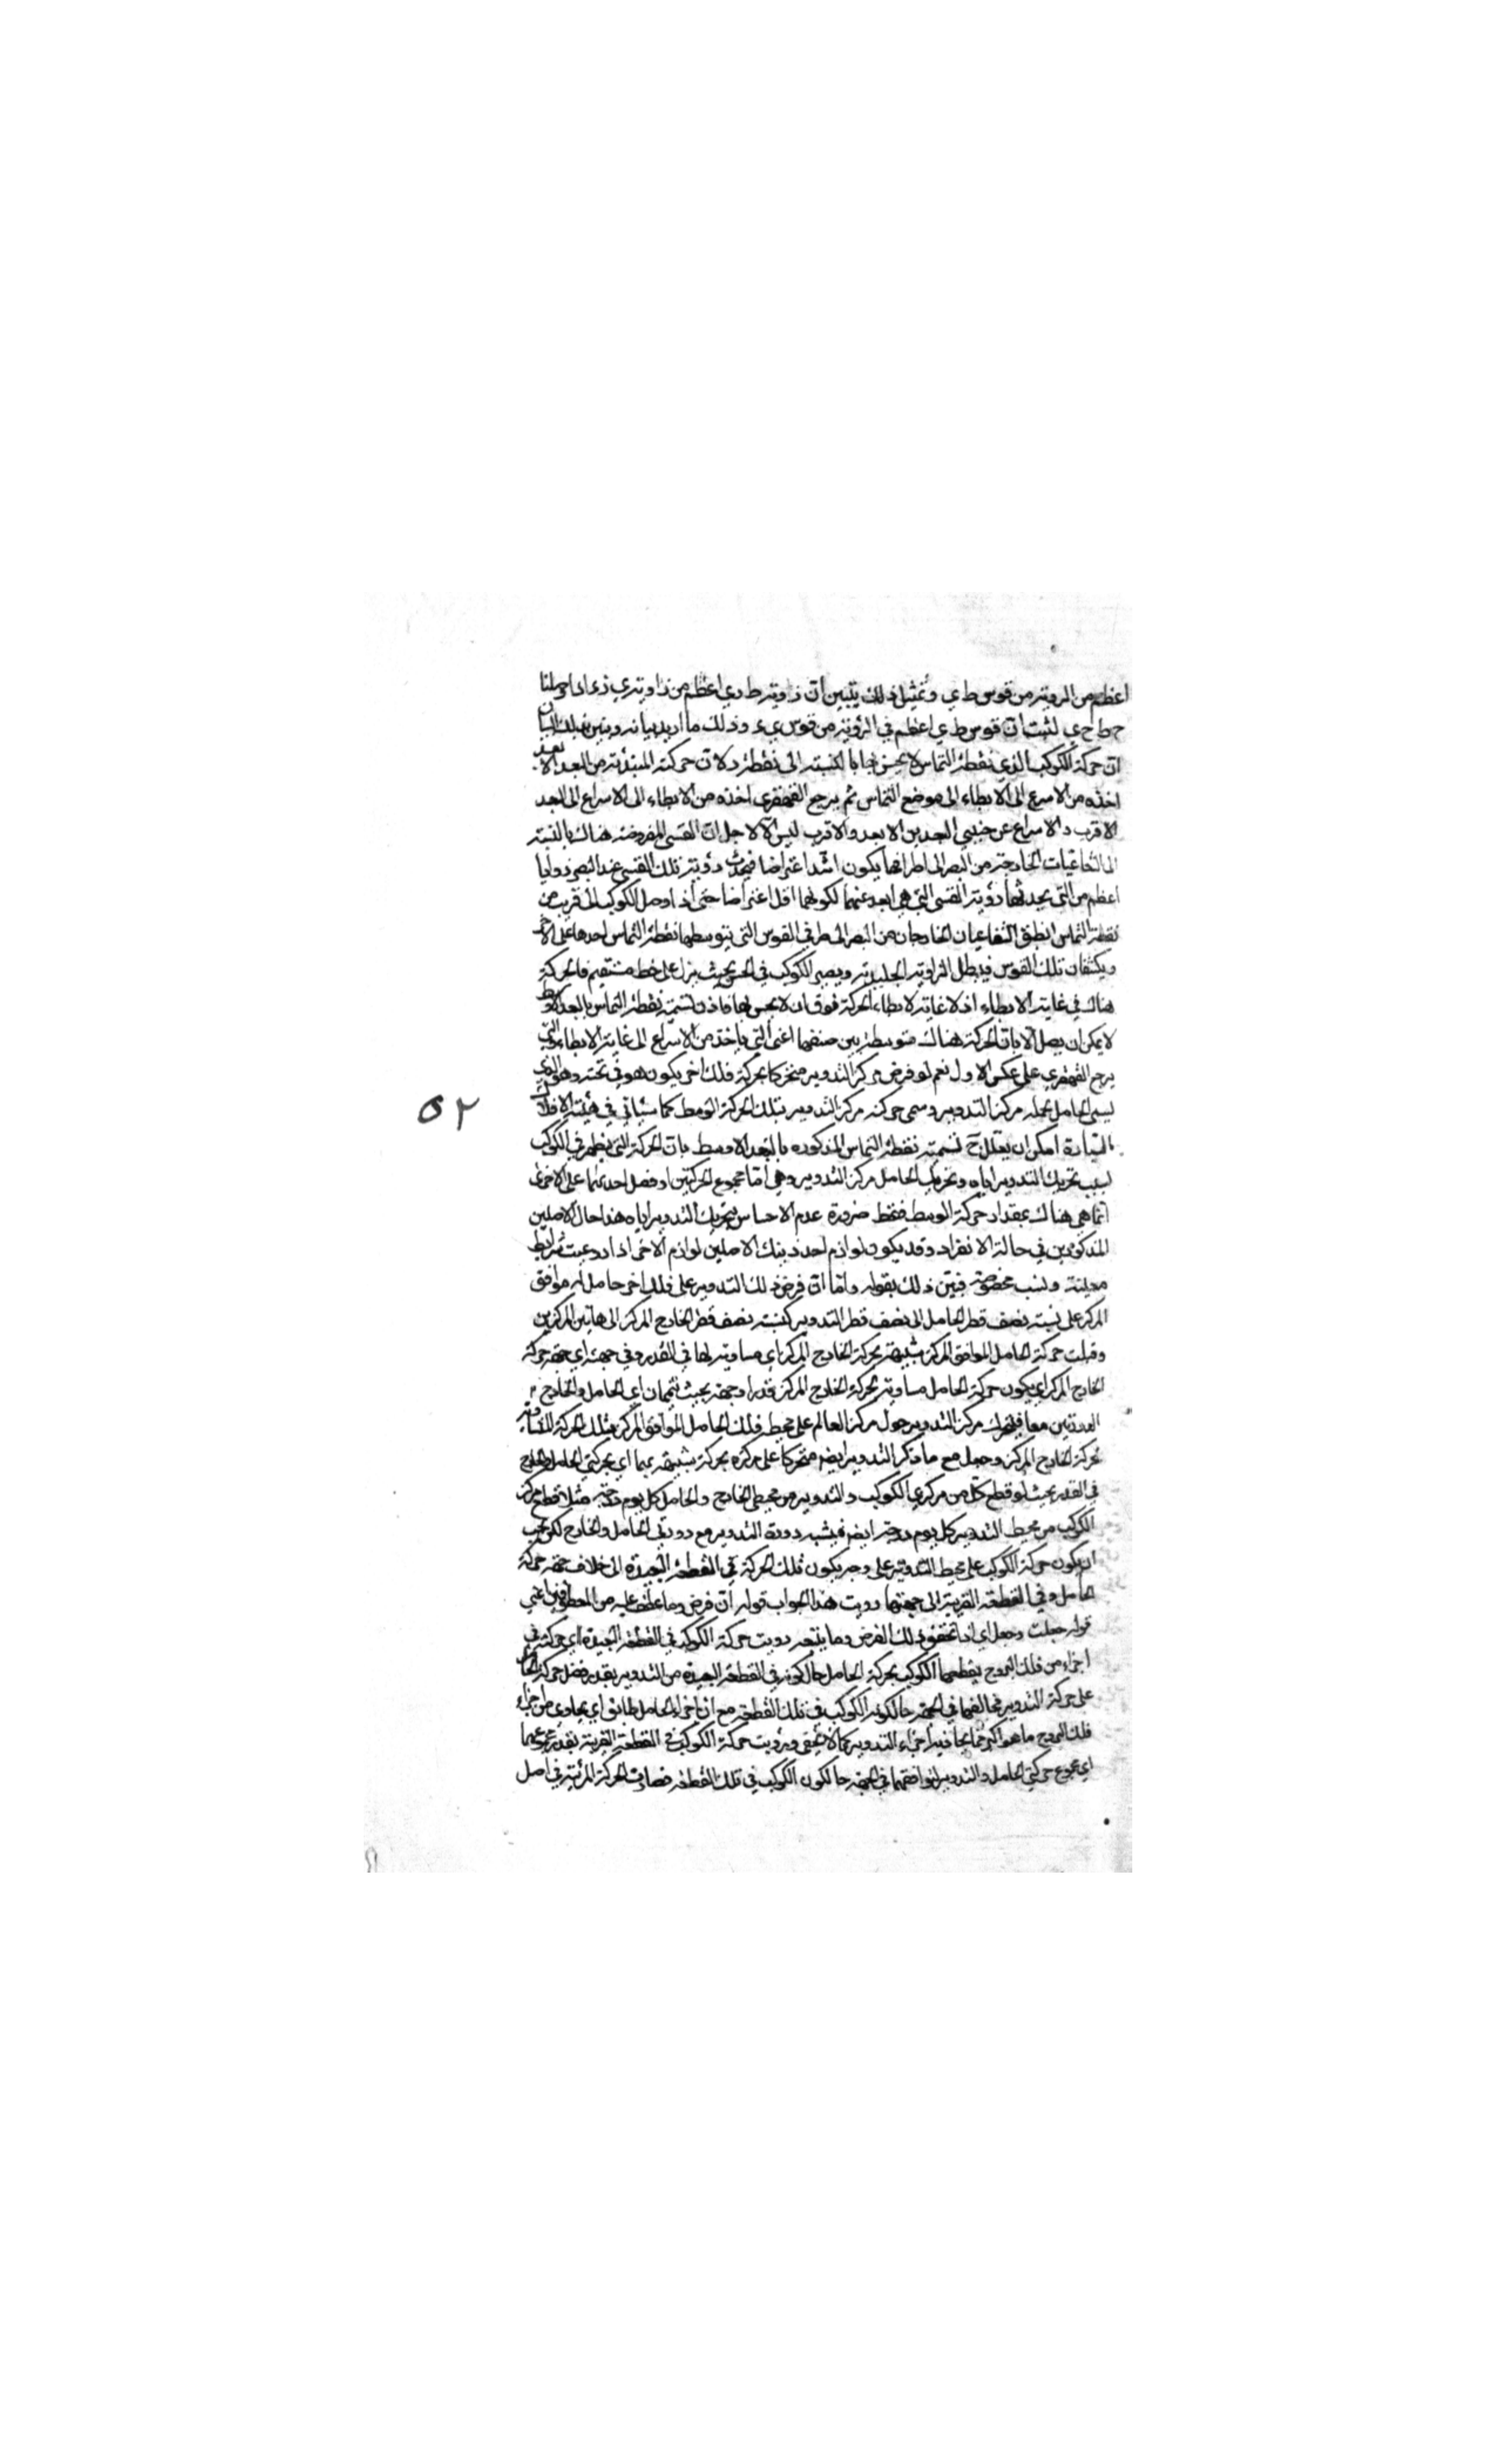 اعظم من الرؤية من قوس ط ي وبمثل ذلك يتبين ان زاوية ط د ي اعظم من زاوية ي د ء اذا وصلنا
ح ط ح ي لثبت ان قوس ط ي اعظم في الرؤية من قوس ي ء وذلك ما اريد بيانه وتبين بذلك البيان
ان حركة الكوكب الذي نقطة التماس لا يحس بها بالنسبة الى نقطة د لان حركته المبتدئة من البعد الابعد
اخذه من الاسرع الى الابطاء الى موضع التماس ثم يرجع القهقرى اخذه من الابطاء الى الاسراع الى البعد
الاقرب والاسراع عن جنبي البعدين الابعد والاقرب ليس الا لاجل ان القسي المفروضة هناك بالنسبة
الى الشعاعيات الخارجة من البصر الى اطرافها يكون اشد اعتراضا فيحدث رؤية تلك القسي عند البصر زوايا
اعظم من التي يحدثها رؤية القسي التي هي ابعد عنهما لكونهما اقل اعتراضا حتى اذا وصل الكوكب الى قريب من
نقطة التماس انطبق الشعاعيان الخارجان من البصر الى طرفي القوس التي يتوسطها نقطة التماس احدها على الاخر
ويكتفان تلك القوس فيبطل الزاوية الجليدية ويصير الكوكب في الحس بحيث ينزل على خط مستقيم فالحركة
هناك في غاية الابطاء اذ لا غاية لابطاء الحركة فوق ان لا يحس بها فاذن تسمية نقطة التماس بالبعد الاوسط
لا يمكن ان يعلل الا بان الحركة هناك متوسطة بين صنفيها اعني التي ياخذ من الاسراع الى غاية الابطاء والتي
يرجع القهقرى على عكس الاول نعم لو فرض مركز التدوير متحركا بحركة فلك اخر يكون هو في تخنه وهو الذي
يسمى الحامل لحمله مركز التدوير وسمى حركته مركز التدوير بتلك الحركة الوسط كما سياتي في هيئة الافلاك
السيارة امكن ان يعلل ح تسمية نقطة التماس المذكورة بالبعد الاوسط بان الحركة التي يظهر في الكوكب
بسبب تحريك التدوير اياه وتحريك الحامل مركز التدوير وهي اما مجموع الحركتين او فضل احديهما على الاخرى
انما هي هناك بمقدار حركة الوسط فقط ضرورة عدم الاحساس بتحريك التدوير اياه هذا حال الاصلين
المذكورين في حالة الانفراد وقد يكون لوازم احد ذينك الاصلين لوازم الاخر اذا روعيت شرائط
معينة ونسب مخصوصة فبين ذلك بقوله واما ان فرض ذلك التدوير على فلك اخر حامل له موافق
المركز على نسبة نصف قطر الحامل الى نصف قطر التدوير كنسبة نصف قطر الخارج المركز الى ما بين المركزين
وجعلت حركة الحامل الموافق المركز شبيهة بحركة الخارج المركز اي مساوية لها في القدر وفي جهته اي جهة حركة
الخارج المركز اي يكون حركة الحامل مساوية لحركة الخارج المركز قدرا وجهة بحيث يتممان اي الحامل والخارج
الدورتين معا فيتحرك مركز التدوير حول مركز العالم على محيط فلك الحامل الموافق المركز بتلك الحركة المساوية
لحركة الخارج المركز وجعل مع ما ذكر التدوير ايضا متحركا على مركزه بحركة شبيهة بهما اي بحركتي الحامل والخارج
في القدر بحيث لو قطع كل من مركزي الكوكب والتدوير من محيطي الخارج والحامل كل يوم درجة مثلا قطع مركز
الكوكب من محيط التدوير كل يوم درجة ايضا فيشبه دورة التدوير مع دورتي الحامل والخارج لكن يجب
ان يكون حركة الكوكب على محيط التدوير على وجه يكون تلك الحركة في القطعة البعيدة الى خلاف جهة حركة
الحامل وفي القطعة القريبة الى جهتها رويت هذا الجواب قوله ان فرض وما عطف عليه من المعطوفين اعني
قوله جعلت وجعل اي اذا تحقق ذلك الفرض وما يتبعه رويت حركة الكوكب في القطعة البعيدة اي حركته في
اجزاء من فلك البروج يقطعها الكوكب بحركة الحامل حال كونه في القطعة البعيدة من التدوير بقدر فضل حركة الحامل
على حركة التدوير لتخالفهما في الجهة حال كون الكوكب في تلك القطعة مع ان اجزاء الحامل اي يحاذي من اجزاء
فلك البروج ما هو اكثر مما يحاذيه اجزاء التدوير كما لا يخفى ورؤيت حركة الكوكب في القطعة القريبة بقدر مجموعهما
اي مجموع حركتي الحامل والتدوير لتوافقهما في الجهة حال كون الكوكب في تلك القطعة فصارت الحركة المرئية في اصل
٥٢